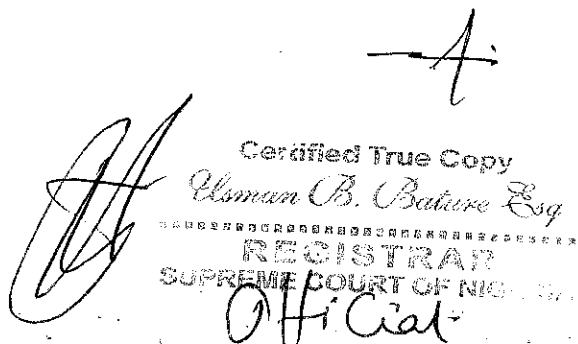 Certified True Copy
Usman B. Bature Esq
REGISTRAR
SUPREME COURT OF
Official